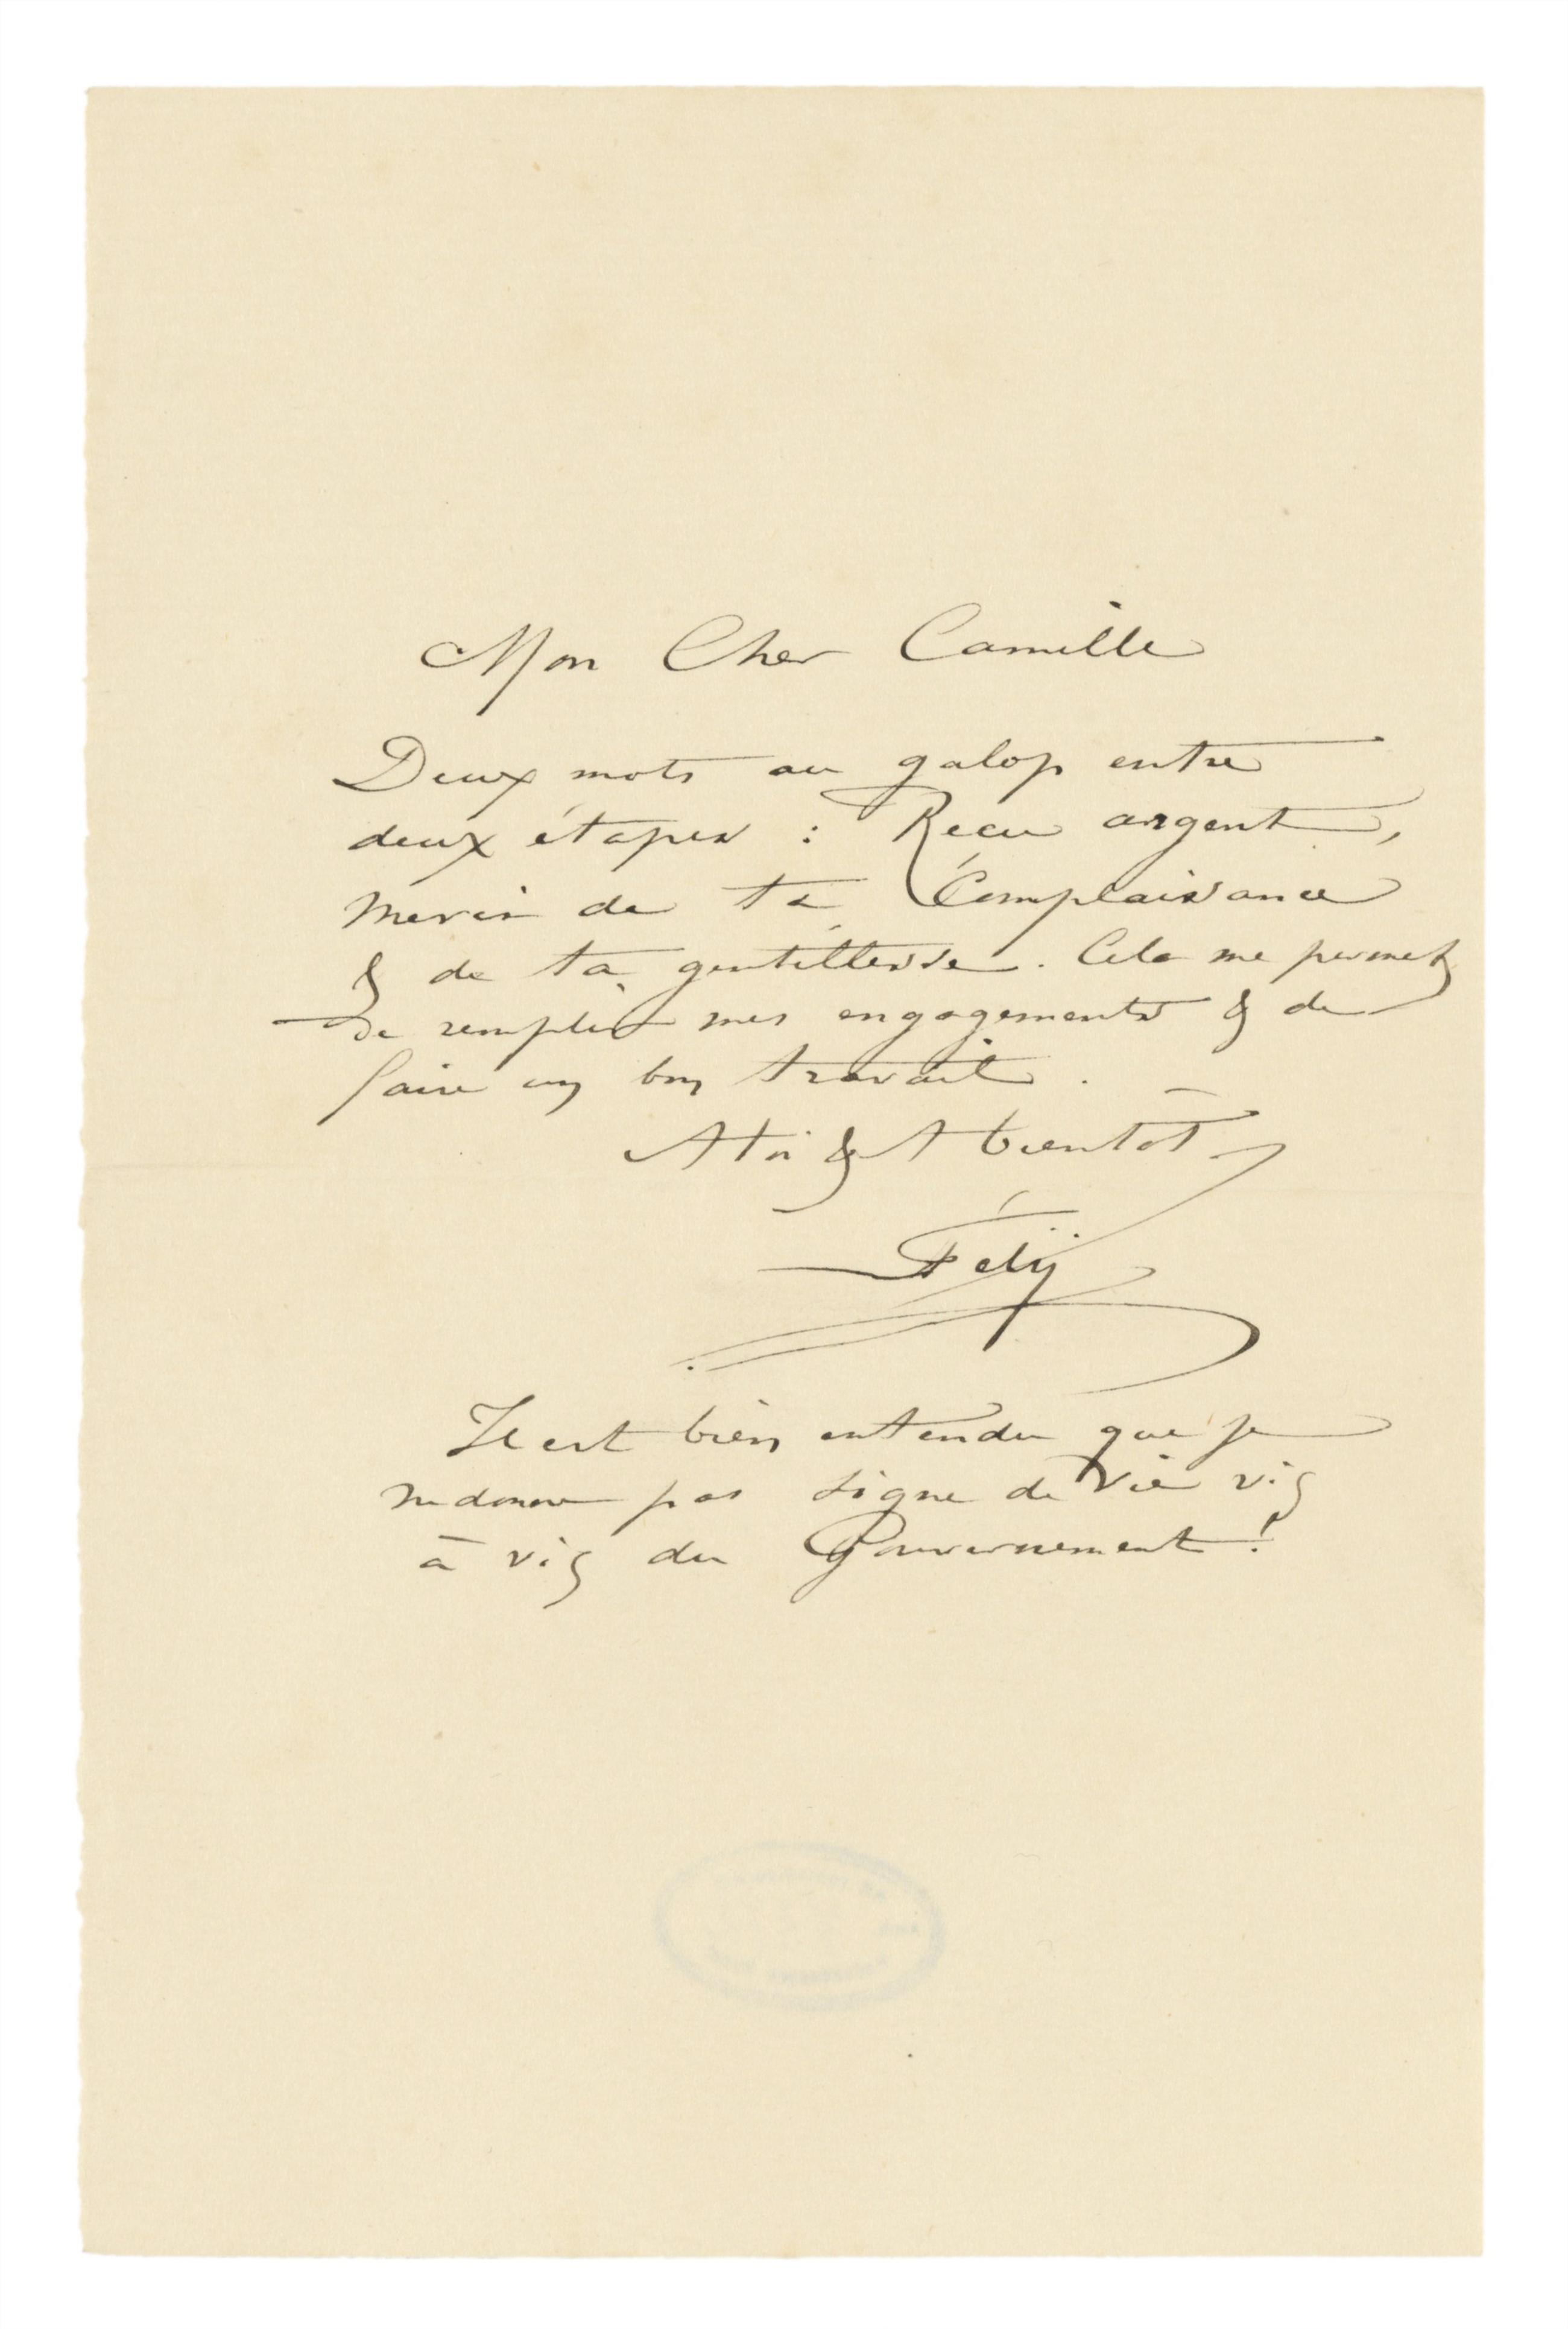 Mon Cher Camille
Deux mots au galop entre
deux étapes : Reçu argent,
merci de ta Complaisance
& de ta gentillesse. Cela me permet
de remplir mes engagements & de
faire un bon travail.
A toi & A bientôt
Fély
Il est bien entendu que je
ne donne pas signe de vie vis
à vis du Gouvernement !